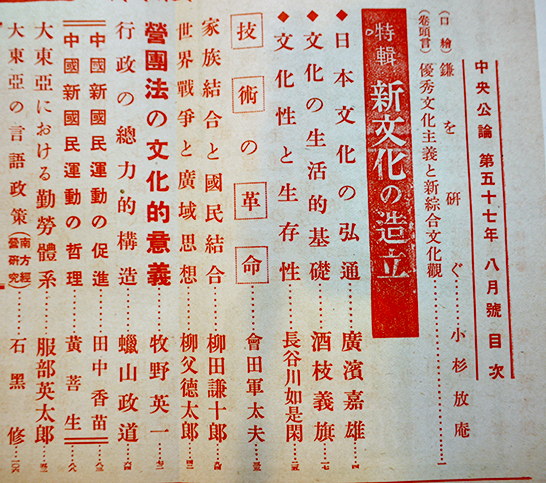 中央公論 第五十七年 八月號 目次
(口繪) 鎌を研ぐ……小杉放庵
(卷頭言) 優秀文化主義と新綜合文化觀……一
特輯 新文化の造立
◆日本文化の弘通……廣濱嘉雄…四
◆文化の生活的基礎……酒枝義旗…一七
◆文化性と生存性……長谷川如是閑…二五
技術の革命……會田軍太夫…三五
家族結合と國民結合……柳田謙十郎…
世界戰爭と廣域思想……柳父德太郎…
營團法の文化的意義……牧野英一…
行政の總力的構造……蠟山政道…
中國新國民運動の促進……田中香苗…
中國新國民運動の哲理……黃菩生…
大東亞における勤勞體系……服部英太郎…
大東亞の言語政策(南方經營研究)……石黑修…